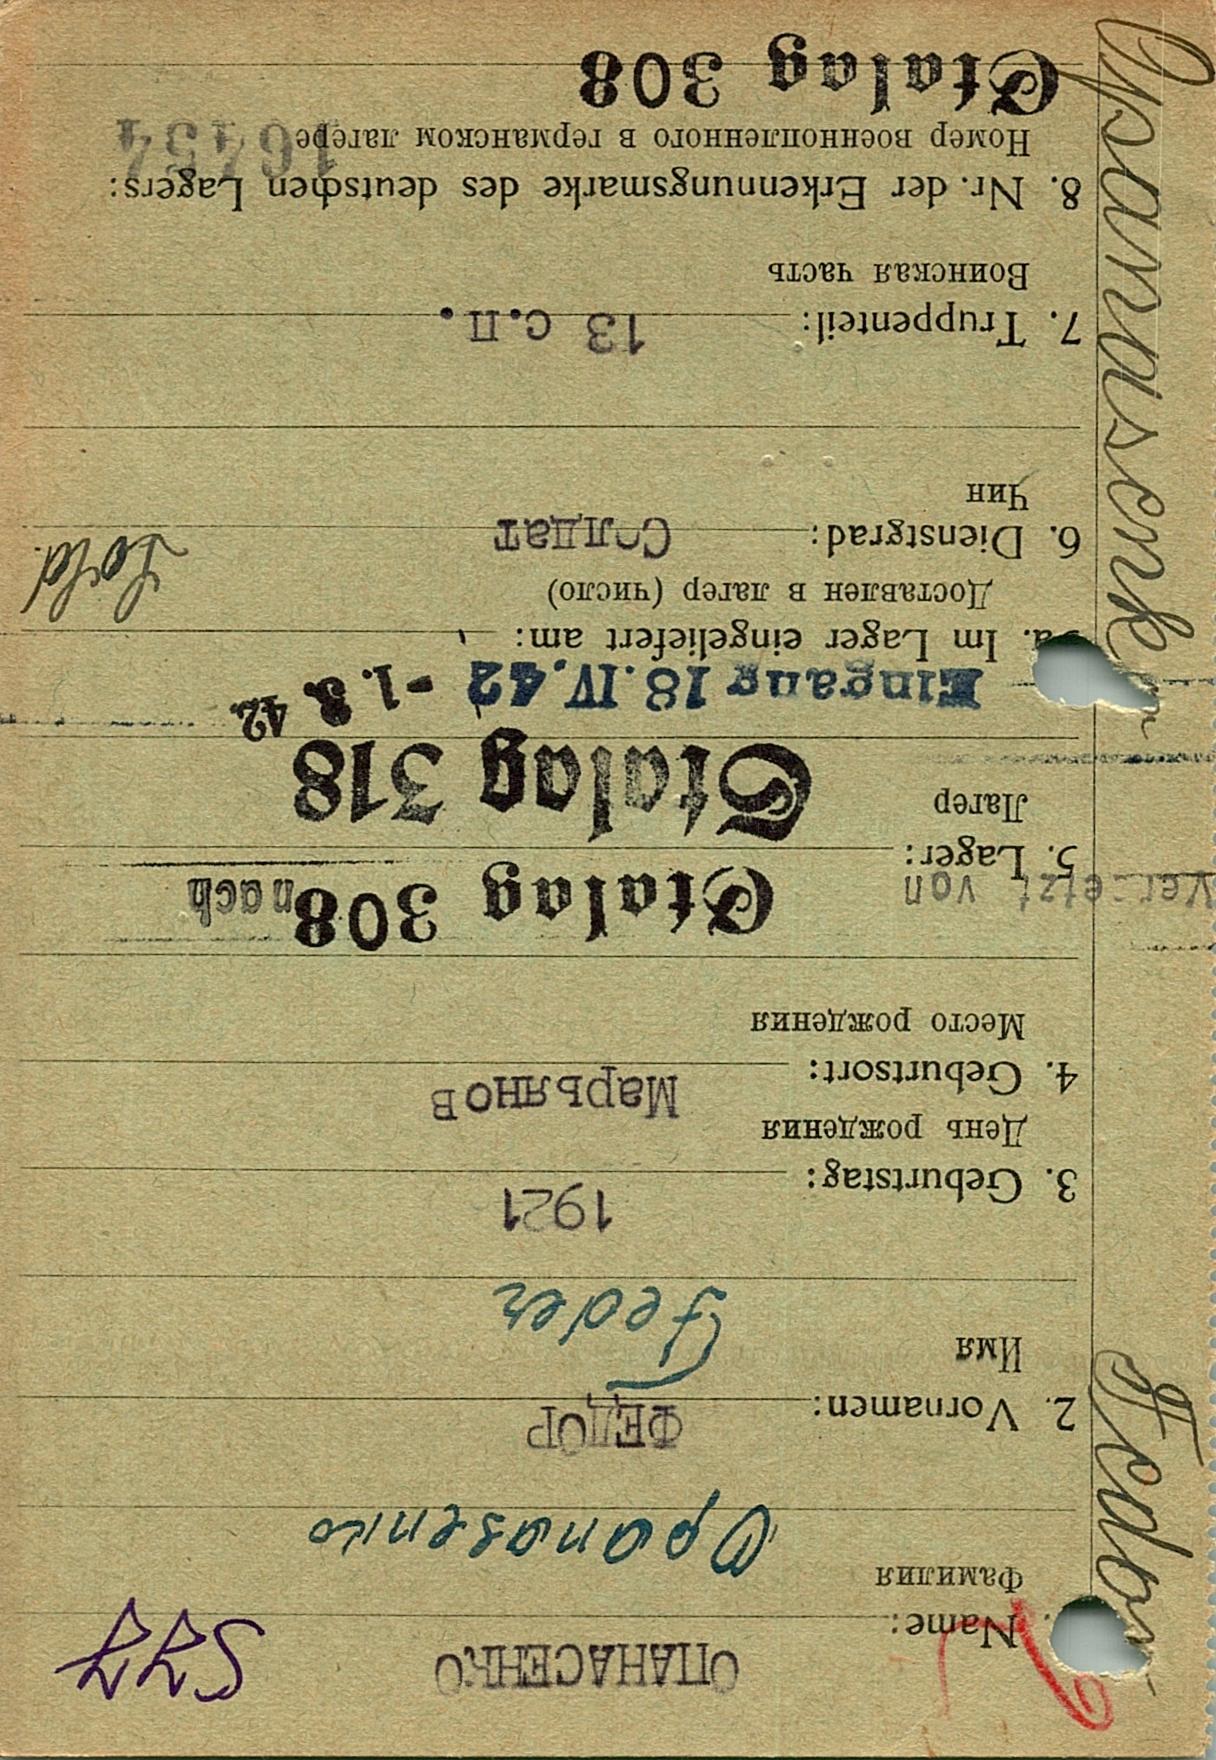 ОПАНАСЕНКО
Name:
Фамилия
Opanasenko
ФЕДОР
2. Vornamen:
Имя
Feder
1921
3. Geburtstag:
День рождения
Марьянов
4. Geburtsort:
Место рождения
versetzt von Stalag 308 nach
5. Lager:
Лагер
Stalag 318
Eingang 18. IV. 42 -1. 8. 42.
a. Im Lager eingeliefert am:
Доставлен в лагер (число)
Sold.
6. Dienstgrad: Солдат
Чин
7. Truppenteil: 13 с.п.
Воинская часть
8. Nr. der Erkennungsmarke des deutschen Lagers:
Номер военнопленного в германском лагере
16454
Stalag 308
Opanasenko
Fedor